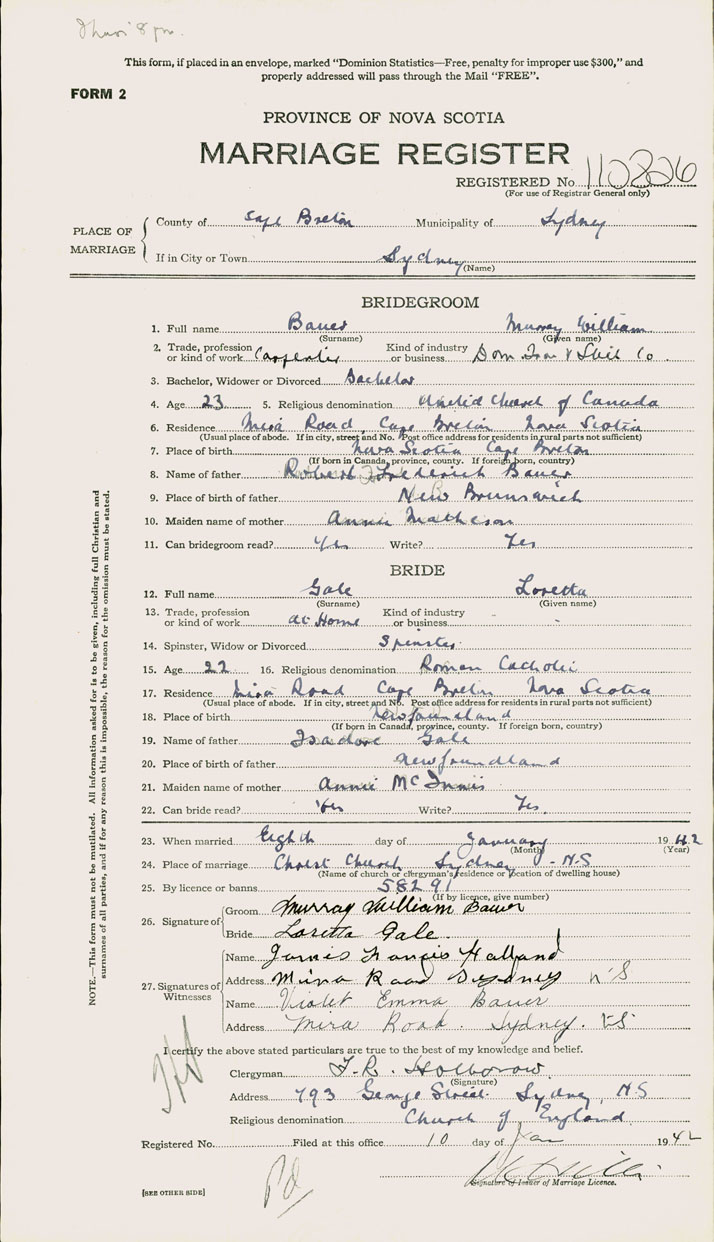 8 pm.
This form, if placed in an envelope, marked "Dominion Statistics—Free, penalty for improper use $300," and
properly addressed will pass through the Mail "FREE".
FORM 2
PROVINCE OF NOVA SCOTIA
MARRIAGE REGISTER
REGISTERED No. 110226
(For use of Registrar General only)
PLACE OF MARRIAGE
County of Cape Breton Municipality of Sydney
If in City or Town Sydney
(Name)
BRIDEGROOM
1. Full name Bauer Murray William
(Surname) (Given name)
2. Trade, profession or kind of work Carpenter Kind of industry or business Dom Iron & Steel Co.
3. Bachelor, Widower or Divorced Bachelor
4. Age 23 5. Religious denomination United Church of Canada
6. Residence Mira Road, Cape Breton Nova Scotia
(Usual place of abode. If in city, street and No. Post office address for residents in rural parts not sufficient)
7. Place of birth Nova Scotia Cape Breton
(If born in Canada, province, county. If foreign born, country)
8. Name of father Robert Frederick Bauer
9. Place of birth of father New Brunswick
10. Maiden name of mother Annie Matheson
11. Can bridegroom read? Yes Write? Yes
BRIDE
12. Full name Gale Loretta
(Surname) (Given name)
13. Trade, profession or kind of work at Home Kind of industry or business -
14. Spinster, Widow or Divorced Spinster
15. Age 22 16. Religious denomination Roman Catholic
17. Residence Mira Road Cape Breton Nova Scotia
(Usual place of abode. If in city, street and No. Post office address for residents in rural parts not sufficient)
18. Place of birth Newfoundland
(If born in Canada, province, county. If foreign born, country)
19. Name of father Isadore Gale
20. Place of birth of father Newfoundland
21. Maiden name of mother Annie McInnis
22. Can bride read? Yes Write? Yes.
23. When married Eighth day of January 1942
(Month) (Year)
24. Place of marriage Christ Church Sydney - N.S
(Name of church or clergyman's residence or location of dwelling house)
25. By licence or banns 58291
(If by licence, give number)
26. Signature of
Groom Murray William Bauer
Bride Loretta Gale.
27. Signatures of Witnesses
Name James Francis Holland
Address Mira Road Sydney N.S
Name Violet Emma Bauer
Address Mira Road. Sydney. N.S
I certify the above stated particulars are true to the best of my knowledge and belief.
Clergyman F.R. Holborow.
(Signature)
Address 793 George Street. Sydney, N.S
Religious denomination Church of England
Registered No. Filed at this office 10 day of Jan 1942
Signature of Issuer of Marriage Licence.
[SEE OTHER SIDE]
Pd
NOTE.—This form must not be mutilated. All information asked for is to be given, including full Christian and
surnames of all parties, and if for any reason this is impossible, the reason for the omission must be stated.